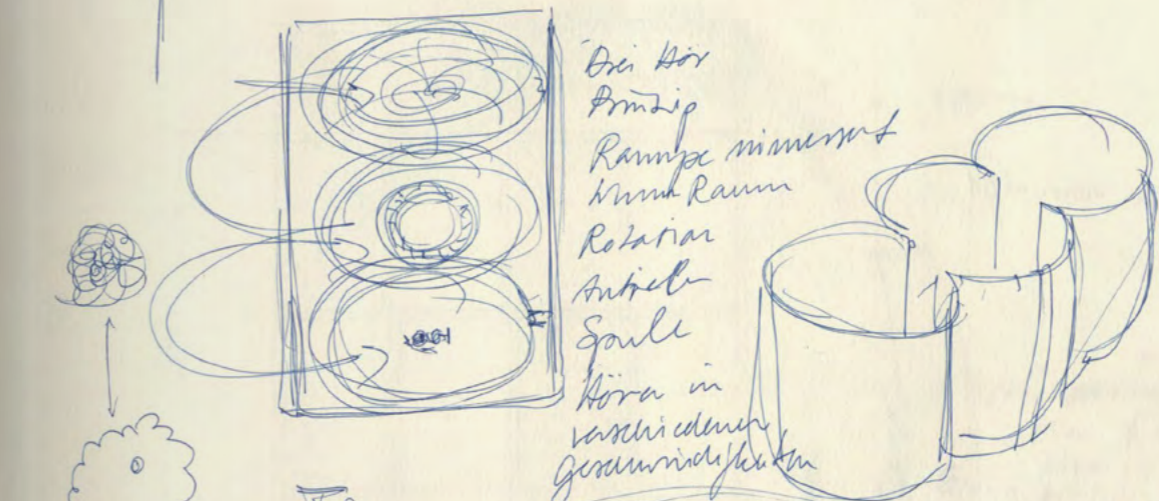 Drei Hör
Prinzip
Rampe
Raum
Rotation
Spule
Hören in
verschiedenen
Geschwindigkeiten